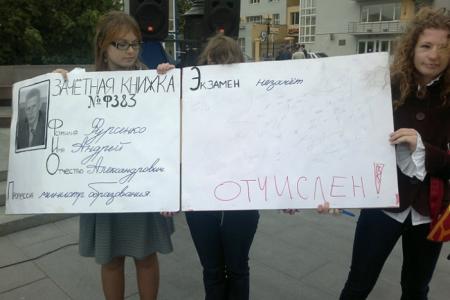 ЗАЧЁТНАЯ КНИЖКА
№ Ф383
Фамилия Фурсенко
Имя Андрей
Отчество Александрович
Профессия министр образования
Экзамен незачёт
ОТЧИСЛЕН!